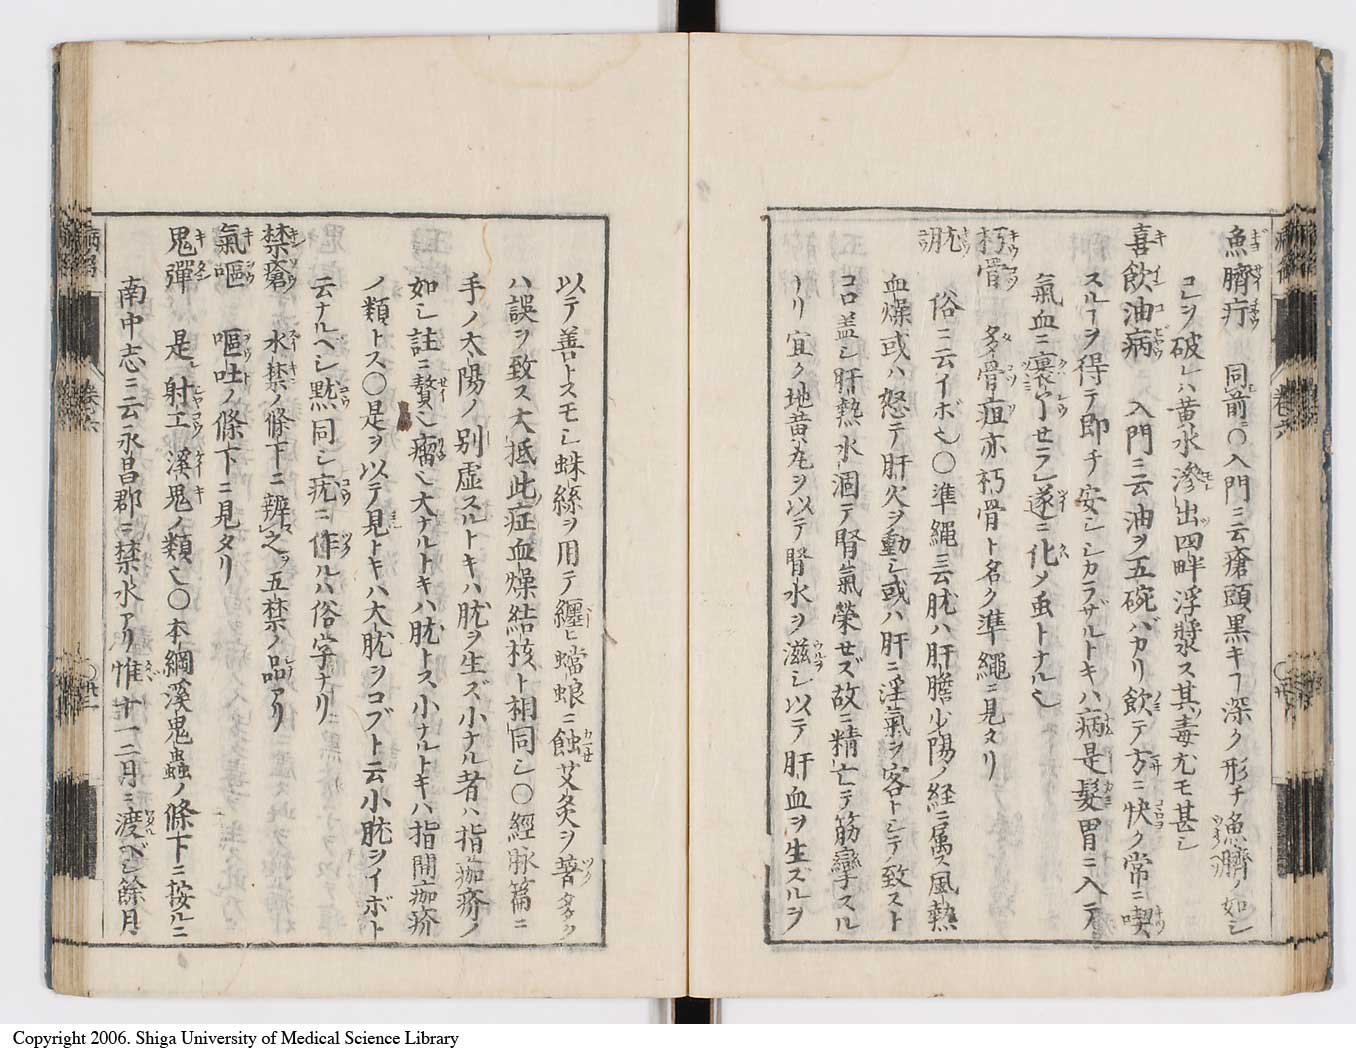 魚臍疔 同前○入門ニ云瘡頭黒キフ深ク形チ魚臍ノ如シ
コレヲ破レハ黄水滲出四畔浮漿ス其毒尤モ甚シ
喜飲油病 入門ニ云油ヲ五碗バカリ飲テ方ニ快ク常ニ喫
スルヿヲ得テ即チ安シシカラザルトキハ病是髪胃ニ入テ
氣血ニ裹マセラレ遂ニ化ノ虫トナル也
朽骨 多骨疽亦朽骨ト名ク準繩ニ見タリ
肬 俗ニ云イボ也○準繩ニ云肬ハ肝膽少陽ノ経ニ属ス風熱
血燥或ハ怒テ肝火ヲ動シ或ハ肝ニ淫氣ヲ客トシテノ致スト
コロ蓋シ肝熱水涸テ腎氣榮セズ故ニ精亡テ筋攣スル
ナリ宜ク地黄丸ヲ以テ腎水ヲ滋シ以テ肝血ヲ生スルヲ
病名
巻六
以テ善トスモシ蛛絲ヲ用テ纒ヒ蟷蜋ニ蝕艾灸ヲ著
ハ誤ヲ致ス大抵此症血燥結核ト相同シ○經脉篇ニ
手ノ太陽ノ別虚スルトキハ肬ヲ生ズ小ナル者ハ指痂疥ノ
如シ註ニ贅也瘤也大ナルトキハ肬トス小ナルトキハ指間痂疥
ノ類トス○是ヲ以テ見トキハ大肬ヲコブト云小肬ヲイボト
云ナルヘシ黙同シ疣ニ作ルハ俗字ナリ
禁瘡 水禁ノ條下ニ辨之ッ五禁ノ品アリ
氣嘔 嘔吐ノ條下ニ見タリ
鬼彈 是レ射工溪鬼ノ類也○本綱溪鬼蟲ノ條下ニ按ルニ
南中志ニ云永昌郡ニ禁水アリ惟十一二月ニ渡ベシ餘月
病名
巻六
○廿一
Copyright 2006. Shiga University of Medical Science Library